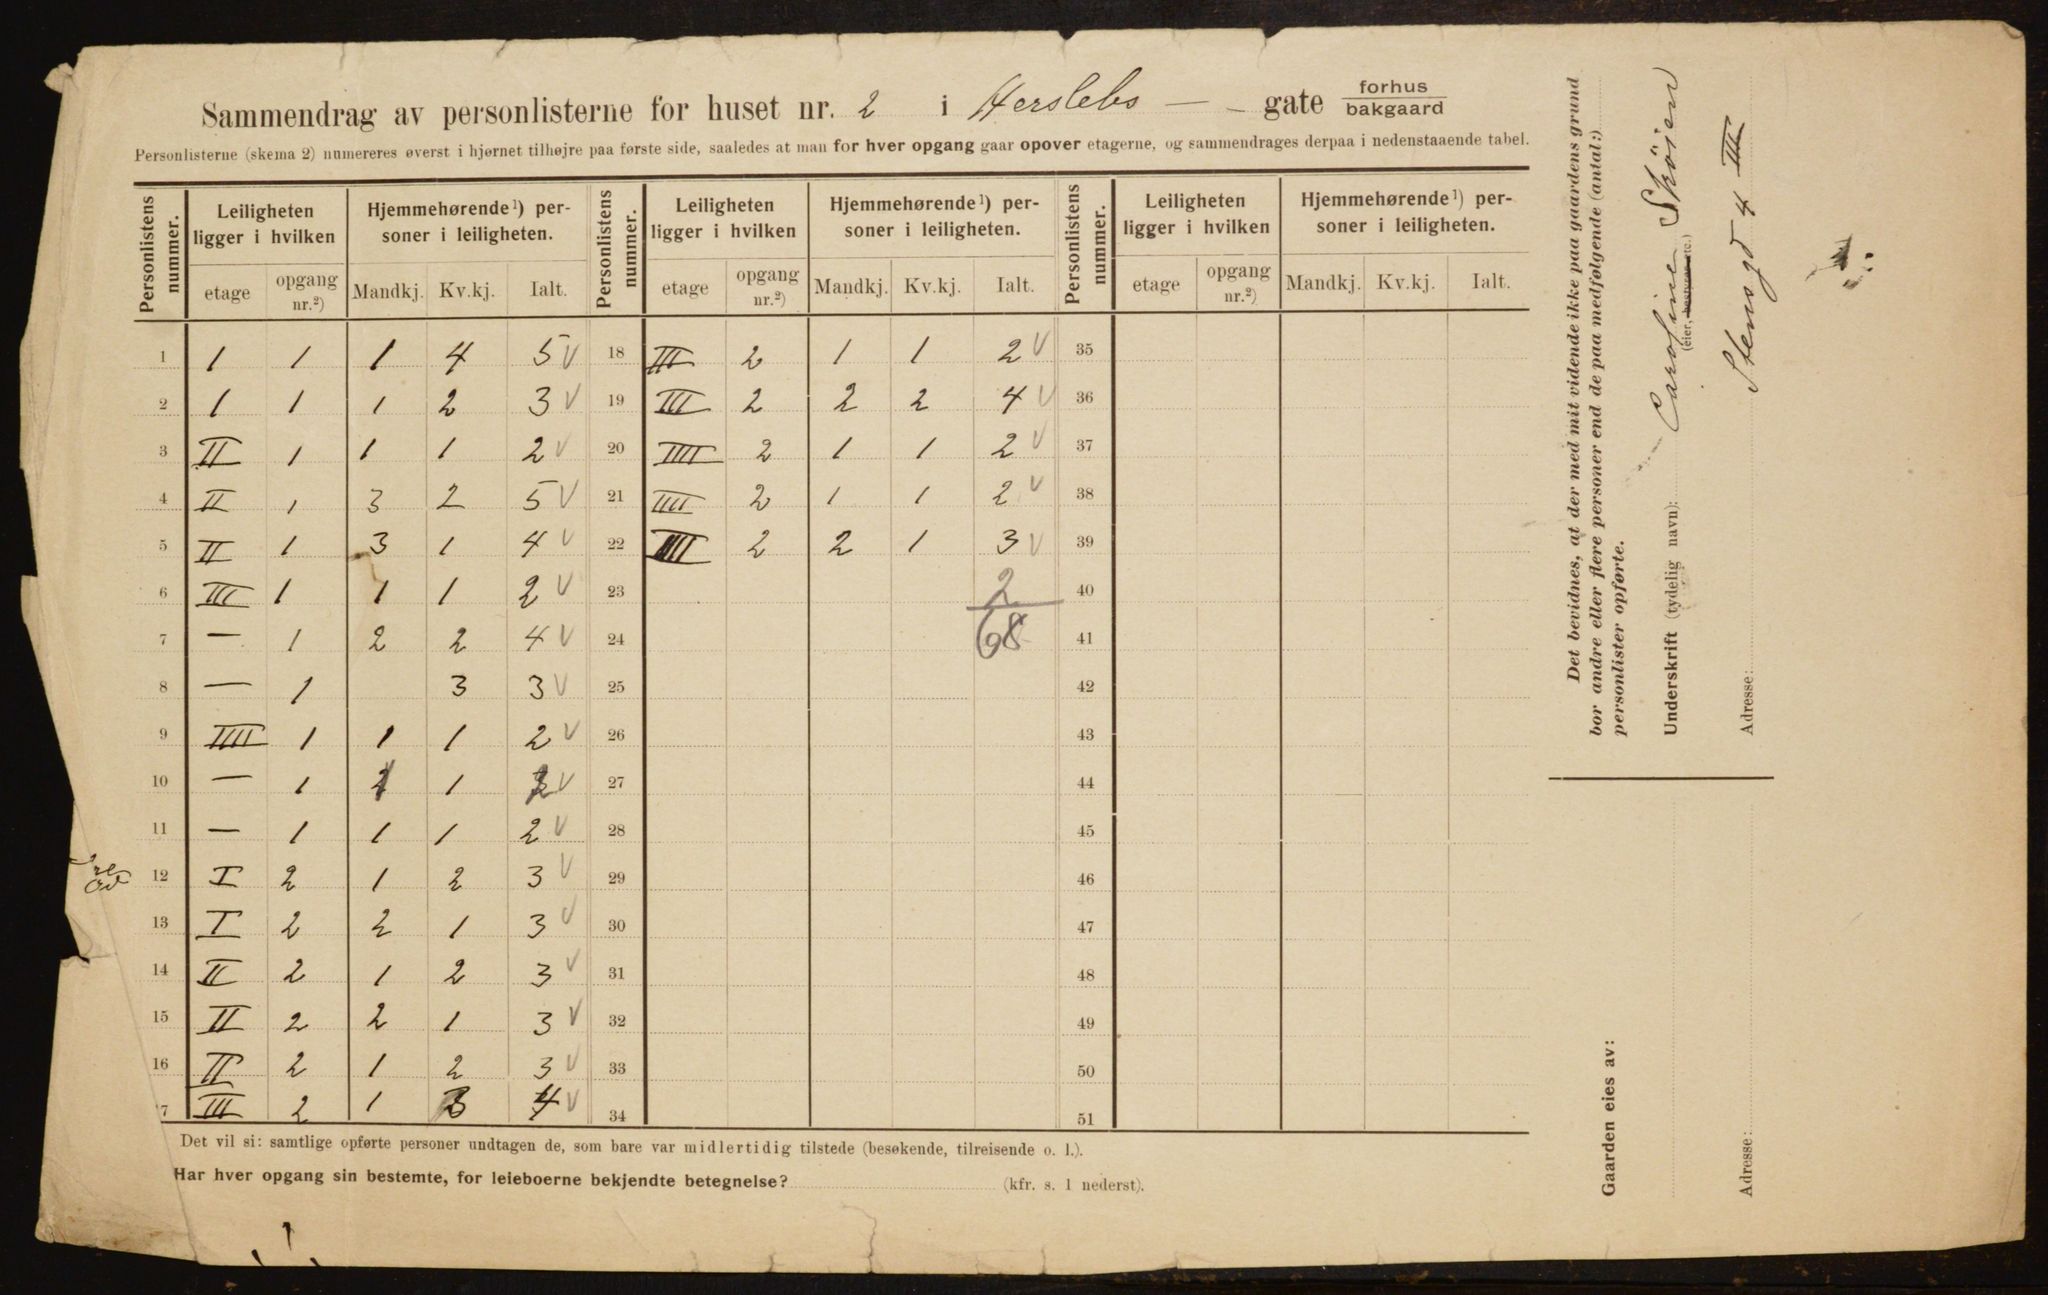 Sammendrag av personlisterne for huset nr. 2 i Herslebs — - gate forhus
bakgaard
Personlisterne (skema 2) numereres øverst i hjørnet tilhøjre paa første side, saaledes at man for hver opgang gaar opover etagerne, og sammendrages derpaa i nedenstaaende tabel.
Personlistens nummer. Leiligheten ligger i hvilken Hjemmehørende¹) personer i leiligheten. Personlistens nummer. Leiligheten ligger i hvilken Hjemmehørende¹) personer i leiligheten. Personlistens nummer. Leiligheten ligger i hvilken Hjemmehørende¹) personer i leiligheten.
etage opgang nr.²) Mandkj. Kv.kj. Ialt. etage opgang nr.²) Mandkj. Kv.kj. Ialt. etage opgang nr.²) Mandkj. Kv.kj. Ialt.
1 1 1 1 4 5 V 18 III 2 1 1 2 V 35
2 1 1 1 2 3 V 19 III 2 2 2 4 V 36
3 II 1 1 1 2 V 20 IIII 2 1 1 2 V 37
4 II 1 3 2 5 V 21 IIII 2 1 1 2 V 38
5 II 1 3 1 4 V 22 IIII 2 2 1 3 V 39
6 III 1 1 1 2 V 23 2 40
7 — 1 2 2 4 V 24 68 41
8 — 1 3 3 V 25 42
9 IIII 1 1 1 2 V 26 43
10 — 1 1 V 27 44
11 — 1 1 1 2 V 28 45
12 I 2 1 2 3 V 29 46
13 I 2 2 1 3 V 30 47
14 II 2 1 2 3 V 31 48
15 II 2 2 1 3 V 32 49
16 II 2 1 2 3 V 33 50
7 III 2 1 3 4 V 34 51
Det vil si: samtlige opførte personer undtagen de, som bare var midlertidig tilstede (besøkende, tilreisende o. l.).
Har hver opgang sin bestemte, for leieboerne bekjendte betegnelse? (kfr. s. 1 nederst).
Det bevidnes, at der med mit vidende ikke paa gaardens grund
bor andre eller flere personer end de paa medfølgende (antal:)
personlister opførte.
Underskrift (tydelig navn): Caroline Sköien
(eier, bestyrer etc.)
Adresse: Stensgd 4 III
Gaarden eies av:
Adresse: